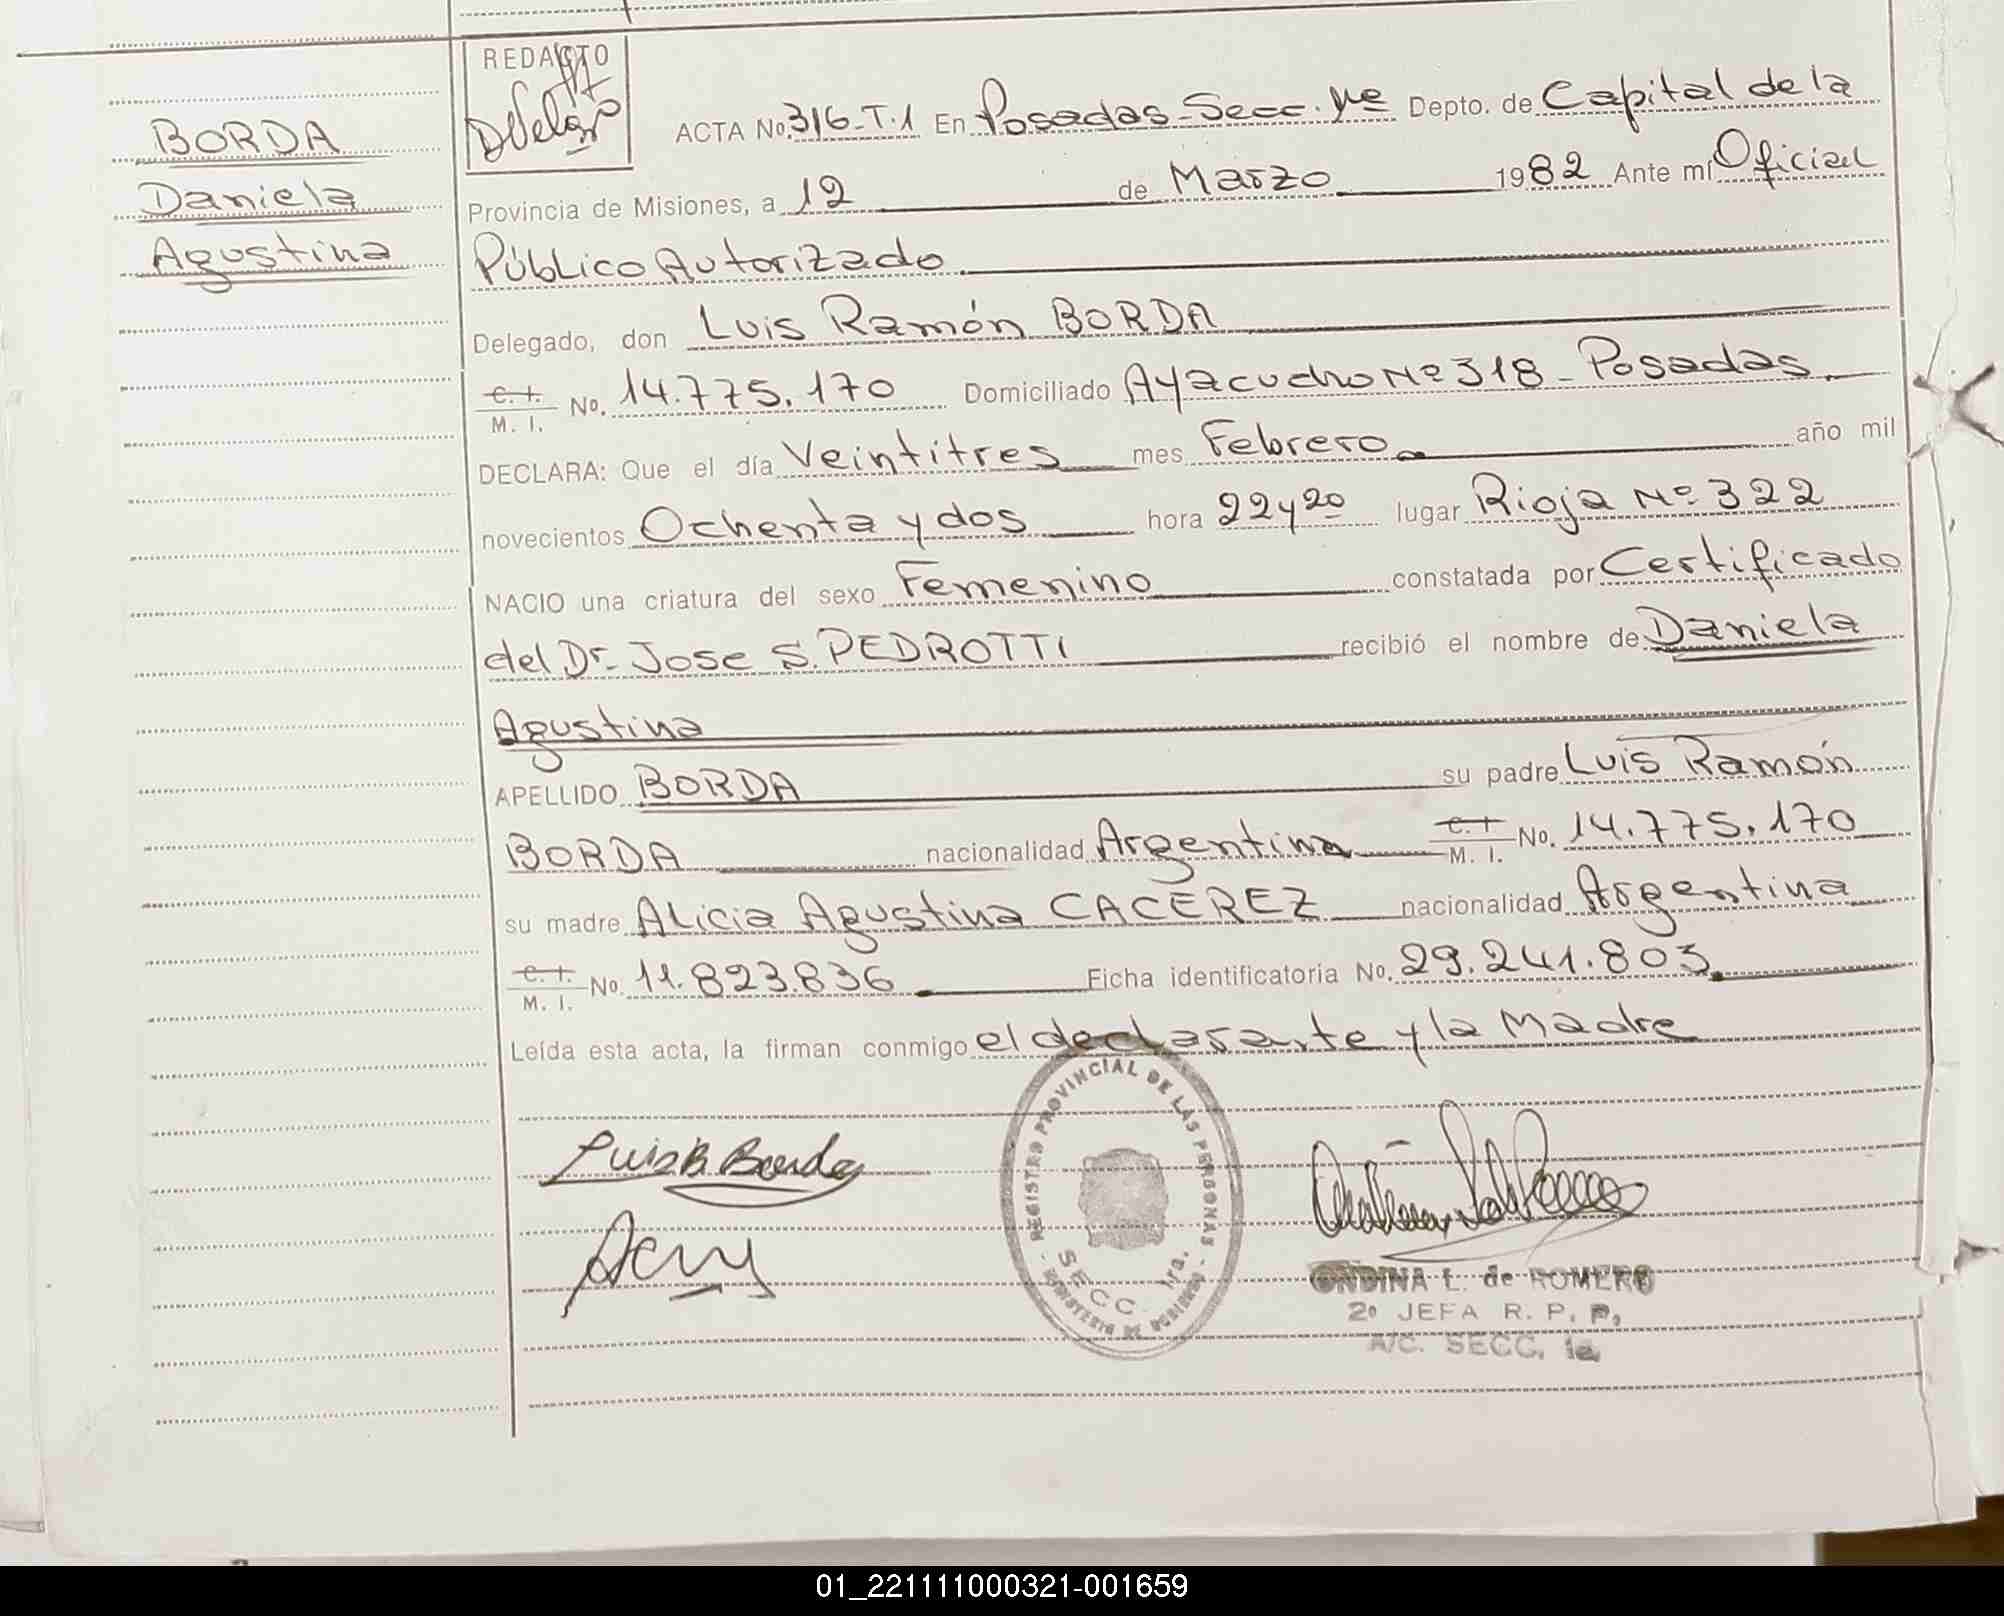 BORDA
Daniela
Agustina
REDACTO
ACTA No. 316-T.1 En Posadas-Secc. 1ra Depto. de Capital de la
Provincia de Misiones, a 12 de Marzo 1982 Ante mí Oficial
Público Autorizado
Delegado, don Luis Ramón BORDA
C. I. M. I. No. 14.775.170 Domiciliado Ayacucho Nº 318 - Posadas.
DECLARA: Que el día Veintitres mes Febrero año mil
novecientos Ochenta y dos hora 22y20 lugar Rioja Nº 322
NACIO una criatura del sexo Femenino constatada por Certificado
del Dr. Jose S. PEDROTTI recibió el nombre de Daniela
Agustina
APELLIDO BORDA su padre Luis Ramón
BORDA nacionalidad Argentina C. I. M. I. No. 14.775.170
su madre Alicia Agustina CACEREZ nacionalidad Argentina
C. I. M. I. No. 11.823.836 Ficha identificatoria No. 29.241.803
Leída esta acta, la firman conmigo el declarante y la Madre
Luis R Borda
REGISTRO PROVINCIAL DE LAS PERSONAS - MINISTERIO DE GOBIERNO -
SECC. 1ra.
ONDINA L. de ROMERO
2º JEFA R. P. P.
A/C. SECC. 1a
01_221111000321-001659